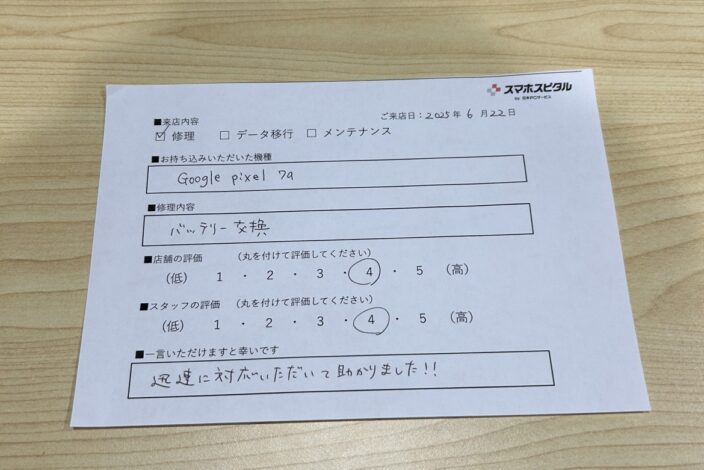 スマホスピタル
by 日本PCサービス
ご来店日：2025年 6月22日
■来店内容
☑ 修理 □ データ移行 □ メンテナンス
■お持ち込みいただいた機種
Google pixel 7a
■修理内容
バッテリー交換
■店舗の評価 （丸を付けて評価してください）
（低） 1 ・ 2 ・ 3 ・ 4 ・ 5 （高）
■スタッフの評価 （丸を付けて評価してください）
（低） 1 ・ 2 ・ 3 ・ 4 ・ 5 （高）
■一言いただけますと幸いです
迅速に対応いただいて助かりました！！